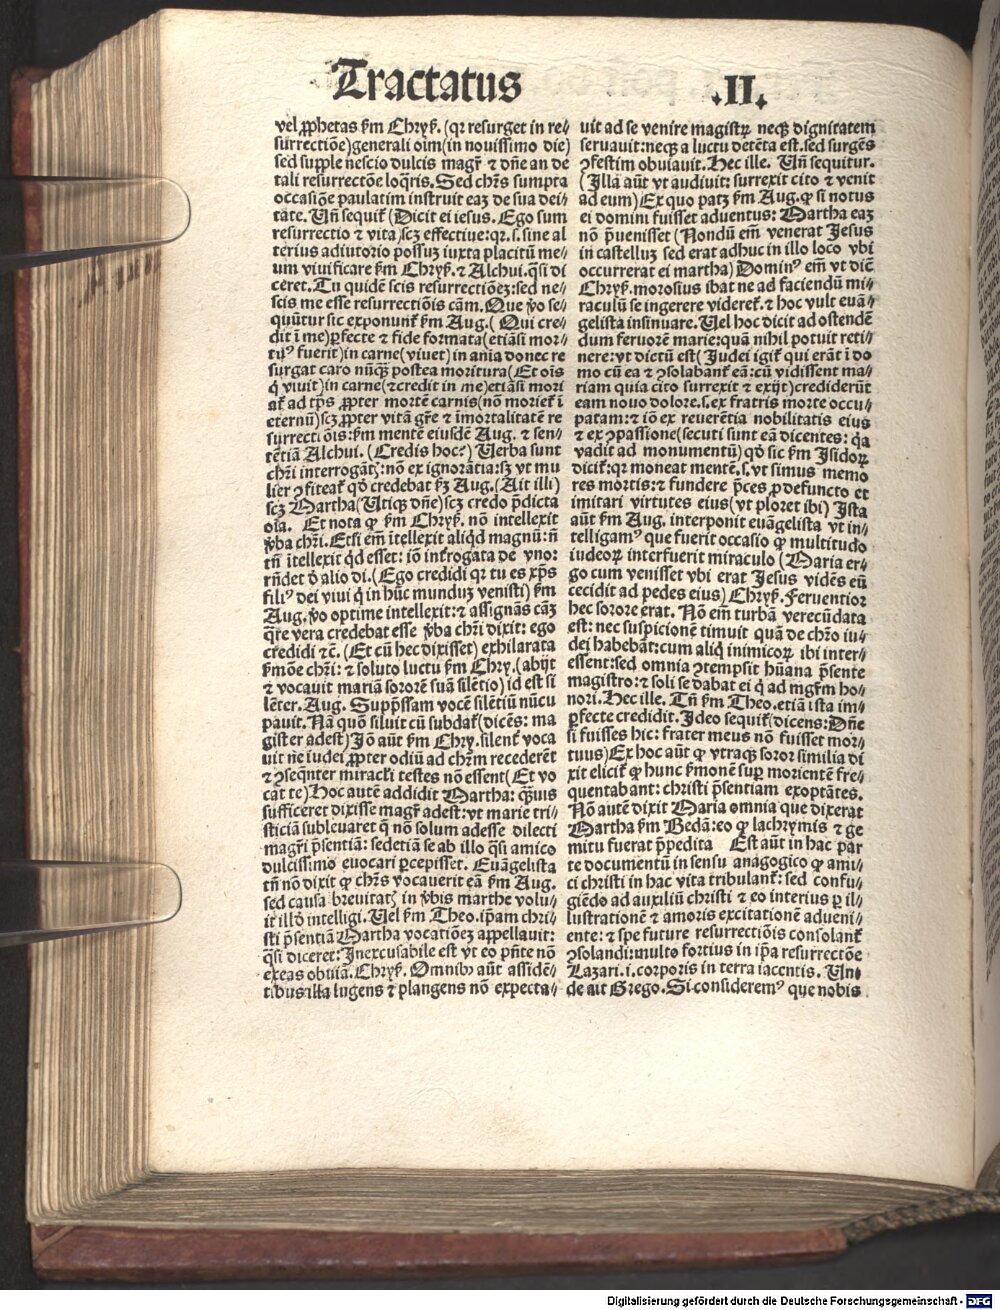 Tractatus .II.
vel ꝓphetas ẜm Chryẜ. (qꝛ resurget in re⸗
surrectiõe) generali oim (in nouissimo die)
sed supple nescio dulcis magr̃ ⁊ dñe an de
tali resurrectõe loq̃ris. Sed chr̃s sumpta
occasiõe paulatim instruit eaʒ de sua dei⸗
tate. Uñ sequit̃ (Dicit ei iesus. Ego sum
resurrectio ⁊ vita) scʒ effectiue: qꝛ. s. sine al
terius adiutorio possuʒ iuxta placitũ me⸗
um viuificare ẜm Chryẜ. ⁊ Alchui. q̃si di
ceret. Tu quidẽ scis resurrectiõeʒ: sed ne⸗
scis me esse resurrectiõis cãm. Que ṽo se⸗
quũtur sic exponunt̃ ẜm Aug. ( Qui cre⸗
dit ĩ me) ꝑfecte ⁊ fide formata (etiãsi mor⸗
tuꝰ fuerit) in carne (viuet) in aĩa donec re
surgat caro nũqꝫ postea moritura (Et oĩs
q̇ viuit) in carne (⁊ credit in me) etiãsi mori
at̃ ad tp̃s ꝓpter mortẽ carnis (nõ moriet̃ ĩ
eternũ) scʒ ꝓpter vitã gr̃e ⁊ ĩmortalitatẽ re
surrectiõis: ẜm mentẽ eiusdẽ Aug. ⁊ sen⸗
tẽtiã Alchui. (Credis hoc?) Uerba sunt
chr̃i interrogãtꝭ: nõ ex ignorãtia: sꝫ vt mu
lier ꝯfiteat̃ qð credebat ẜꝫ Aug. (Ait illi)
scʒ Martha (Utiqꝫ dñe) scʒ credo p̃dicta
oĩa. Et nota ꝙ ẜm Chryẜ. nõ intellexit
ṽba chr̃i. Etsi em̃ ĩtellexit aliqd magnũ: ñ
tñ ĩtellexit qd esset: iõ int̃rogata de vno:
rñdet ð alio di. (Ego credidi qꝛ tu es xp̃s
filiꝰ dei viui q̇ in hũc munduʒ venisti) ẜm
Aug. ṽo optime intellexit: ⁊ assignãs cãʒ
q̃re vera credebat esse ṽba chr̃i dixit: ego
credidi ⁊c̃. (Et cũ hec dixisset) exhilarata
ẜmõe chr̃i: ⁊ soluto luctu ẜm Chry. (abijt
⁊ vocauit mariã sororẽ suã silẽtio) id est si
lẽter. Aug. Supp̃ssam vocẽ silẽtiũ nũcu
pauit. Nã quõ siluit cũ subdat̃ (dicẽs: ma
gister adest) Jõ aũt ẜm Chry. silent̃ voca
uit ne iudei ꝓpter odiũ ad chr̃m recederẽt
⁊ ꝯseq̃nter miracl̃i testes nõ essent (Et vo
cat te) Hoc autẽ addidit Martha: q̃ꝫuis
sufficeret dixisse magr̃ adest: vt marie tri⸗
sticiã subleuaret q̃ nõ solum adesse dilecti
magr̃i p̃sentiã: sed etiã se ab illo q̃si amico
dulcissimo euocari ꝑcepisset. Euãgelista
tñ nõ dixit ꝙ chr̃s vocauerit eã ẜm Aug.
sed causa breuitatꝭ in ṽbis marthe volu⸗
it illð intelligi. Uel ẜm Theo. ip̃am chri⸗
sti p̃sentiã Martha vocatiõeʒ appellauit:
q̃si diceret: Inexcusabile est vt eo p̃ñte nõ
exeas obuiã. Chryẜ. Omnibꝫ aũt assidẽ⸗
tibus illa lugens ⁊ plangens nõ expecta⸗
uit ad se venire magistꝝ neqꝫ dignitatem
seruauit: neqꝫ a luctu detẽta est. sed surgẽs
ꝯfestim obuiauit. Hec ille. Uñ sequitur.
(Illa aũt vt audiuit: surrexit cito ⁊ venit
ad eum) Ex quo patʒ ẜm Aug. ꝙ si notus
ei domini fuisset aduentus: Martha eaʒ
nõ p̃uenisset (Nondũ em̃ venerat Jesus
in castelluʒ sed erat adhuc in illo loco vbi
occurrerat ei martha) Dominꝰ em̃ vt dic̃
Chryẜ. morosius ibat ne ad faciendũ mi⸗
raculũ se ingerere videret̃. ⁊ hoc vult euã⸗
gelista insinuare. Uel hoc dicit ad ostendẽ
dum feruorẽ marie: quã nihil potuit reti⸗
nere: vt dictũ est ( Judei igit̃ qui erãt ĩ do
mo cũ ea ⁊ ꝯsolabant̃ eã: cũ vidissent ma⸗
riam quia cito surrexit ⁊ exijt) crediderũt
eam nouo dolore. s. ex fratris morte occu⸗
patam: ⁊ iõ ex reuerẽtia nobilitatis eius
⁊ ex ꝯpassione (secuti sunt eã dicentes: q̃a
vadit ad monumentũ) qð sic ẜm Isidoꝝ
dicit̃: qꝛ moneat mentẽ. s. vt simus memo
res mortis: ⁊ fundere p̃ces ꝓ defuncto et
imitari virtutes eius (vt ploret ibi) Ista
aũt ẜm Aug. interponit euãgelista vt in⸗
telligamꝰ que fuerit occasio ꝙ multitudo
iudeoꝝ interfuerit miraculo (Maria er⸗
go cum venisset vbi erat Jesus vidẽs eũ
cecidit ad pedes eius) Chryẜ. Feruentioꝛ
hec sorore erat. Nõ em̃ turbã verecũdata
est: nec suspicionẽ timuit quã de chr̃o iu⸗
dei habebãt: cum aliq̃ inimicoꝝ ibi inter⸗
essent: sed omnia ꝯtempsit hũana p̃sente
magistro: ⁊ soli se dabat ei q̇ ad mgr̃m ho⸗
nori. Hec ille. Tñ ẜm Theo. etiã ista im⸗
ꝑfecte credidit. Ideo sequit̃ (dicens: Dñe
si fuisses hic: frater meus nõ fuisset mor⸗
tuus) Ex hoc aũt ꝙ vtraqꝫ soror similia di
xit elicit̃ ꝙ hunc ẜmonẽ suꝑ morientẽ fre⸗
quentabant: christi p̃sentiam exoptãtes.
Nõ autẽ dixit Maria omnia que dixerat
Martha ẜm Bedã: eo ꝙ lachrymis ⁊ ge
mitu fuerat p̃pedita Est aũt in hac par
te documentũ in sensu anagogico ꝙ ami⸗
ci christi in hac vita tribulant̃: sed confu⸗
giẽdo ad auxiliũ christi ⁊ eo interius ꝑ il⸗
lustrationẽ ⁊ amoris excitationẽ adueni⸗
ente: ⁊ spe future resurrectiõis consolant̃
ꝯsolandi: multo fortius in ip̃a resurrectõe
Lazari. i. corporis in terra iacentis. Un⸗
de ait Grego. Si consideremꝰ que nobis
Digitalisierung gefördert durch die Deutsche Forschungsgemeinschaft - DFG